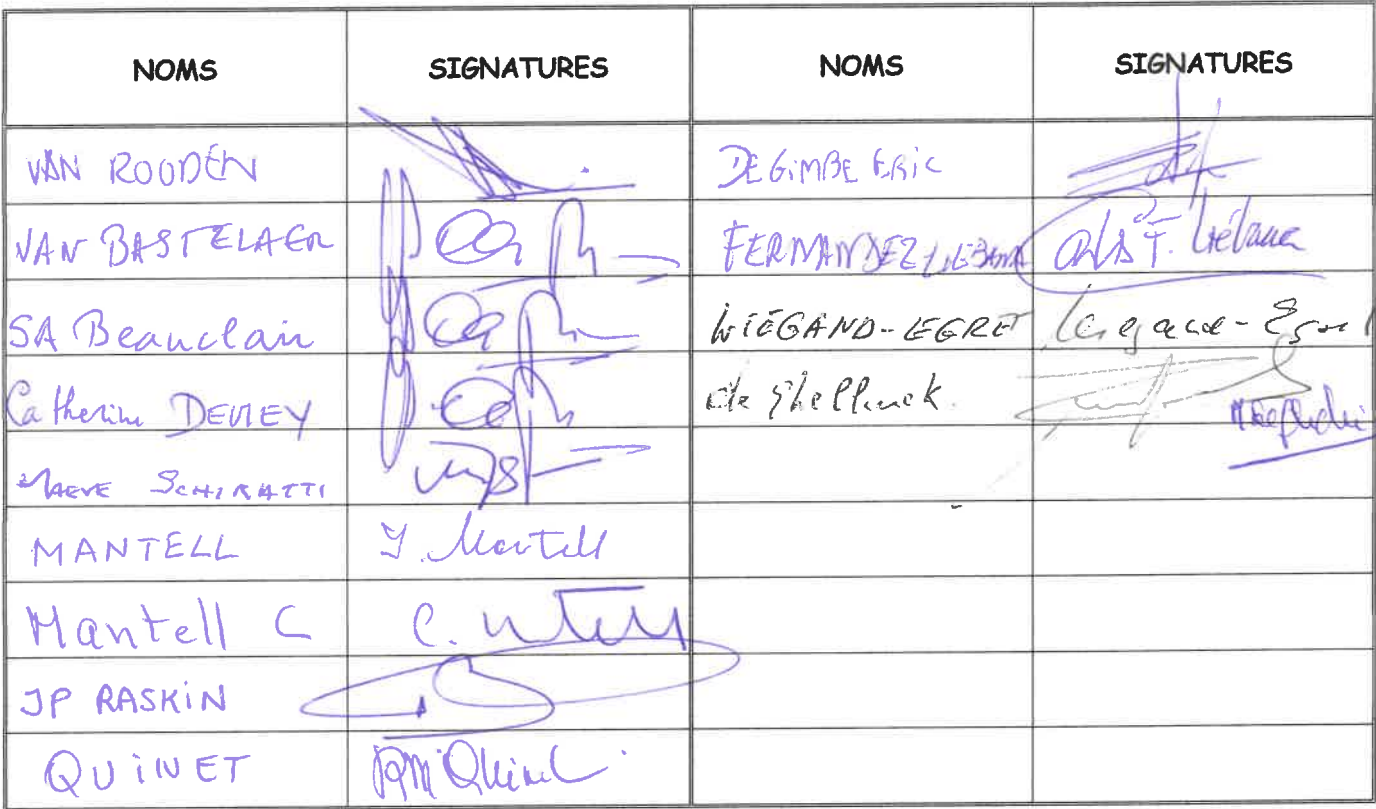 NOMS SIGNATURES NOMS SIGNATURES
VAN ROODEN DEGIMBE ERIC
VAN BASTELAER FERNANDEZ LIEBANA Liébana
SA Beauclair WIEGAND-EGRET Wiegand-Egret
Catherine DEVLEY
MAEVE SCHIRATTI
MANTELL J. Mantell
Mantell C C.
JP RASKIN
QUINET Quinet